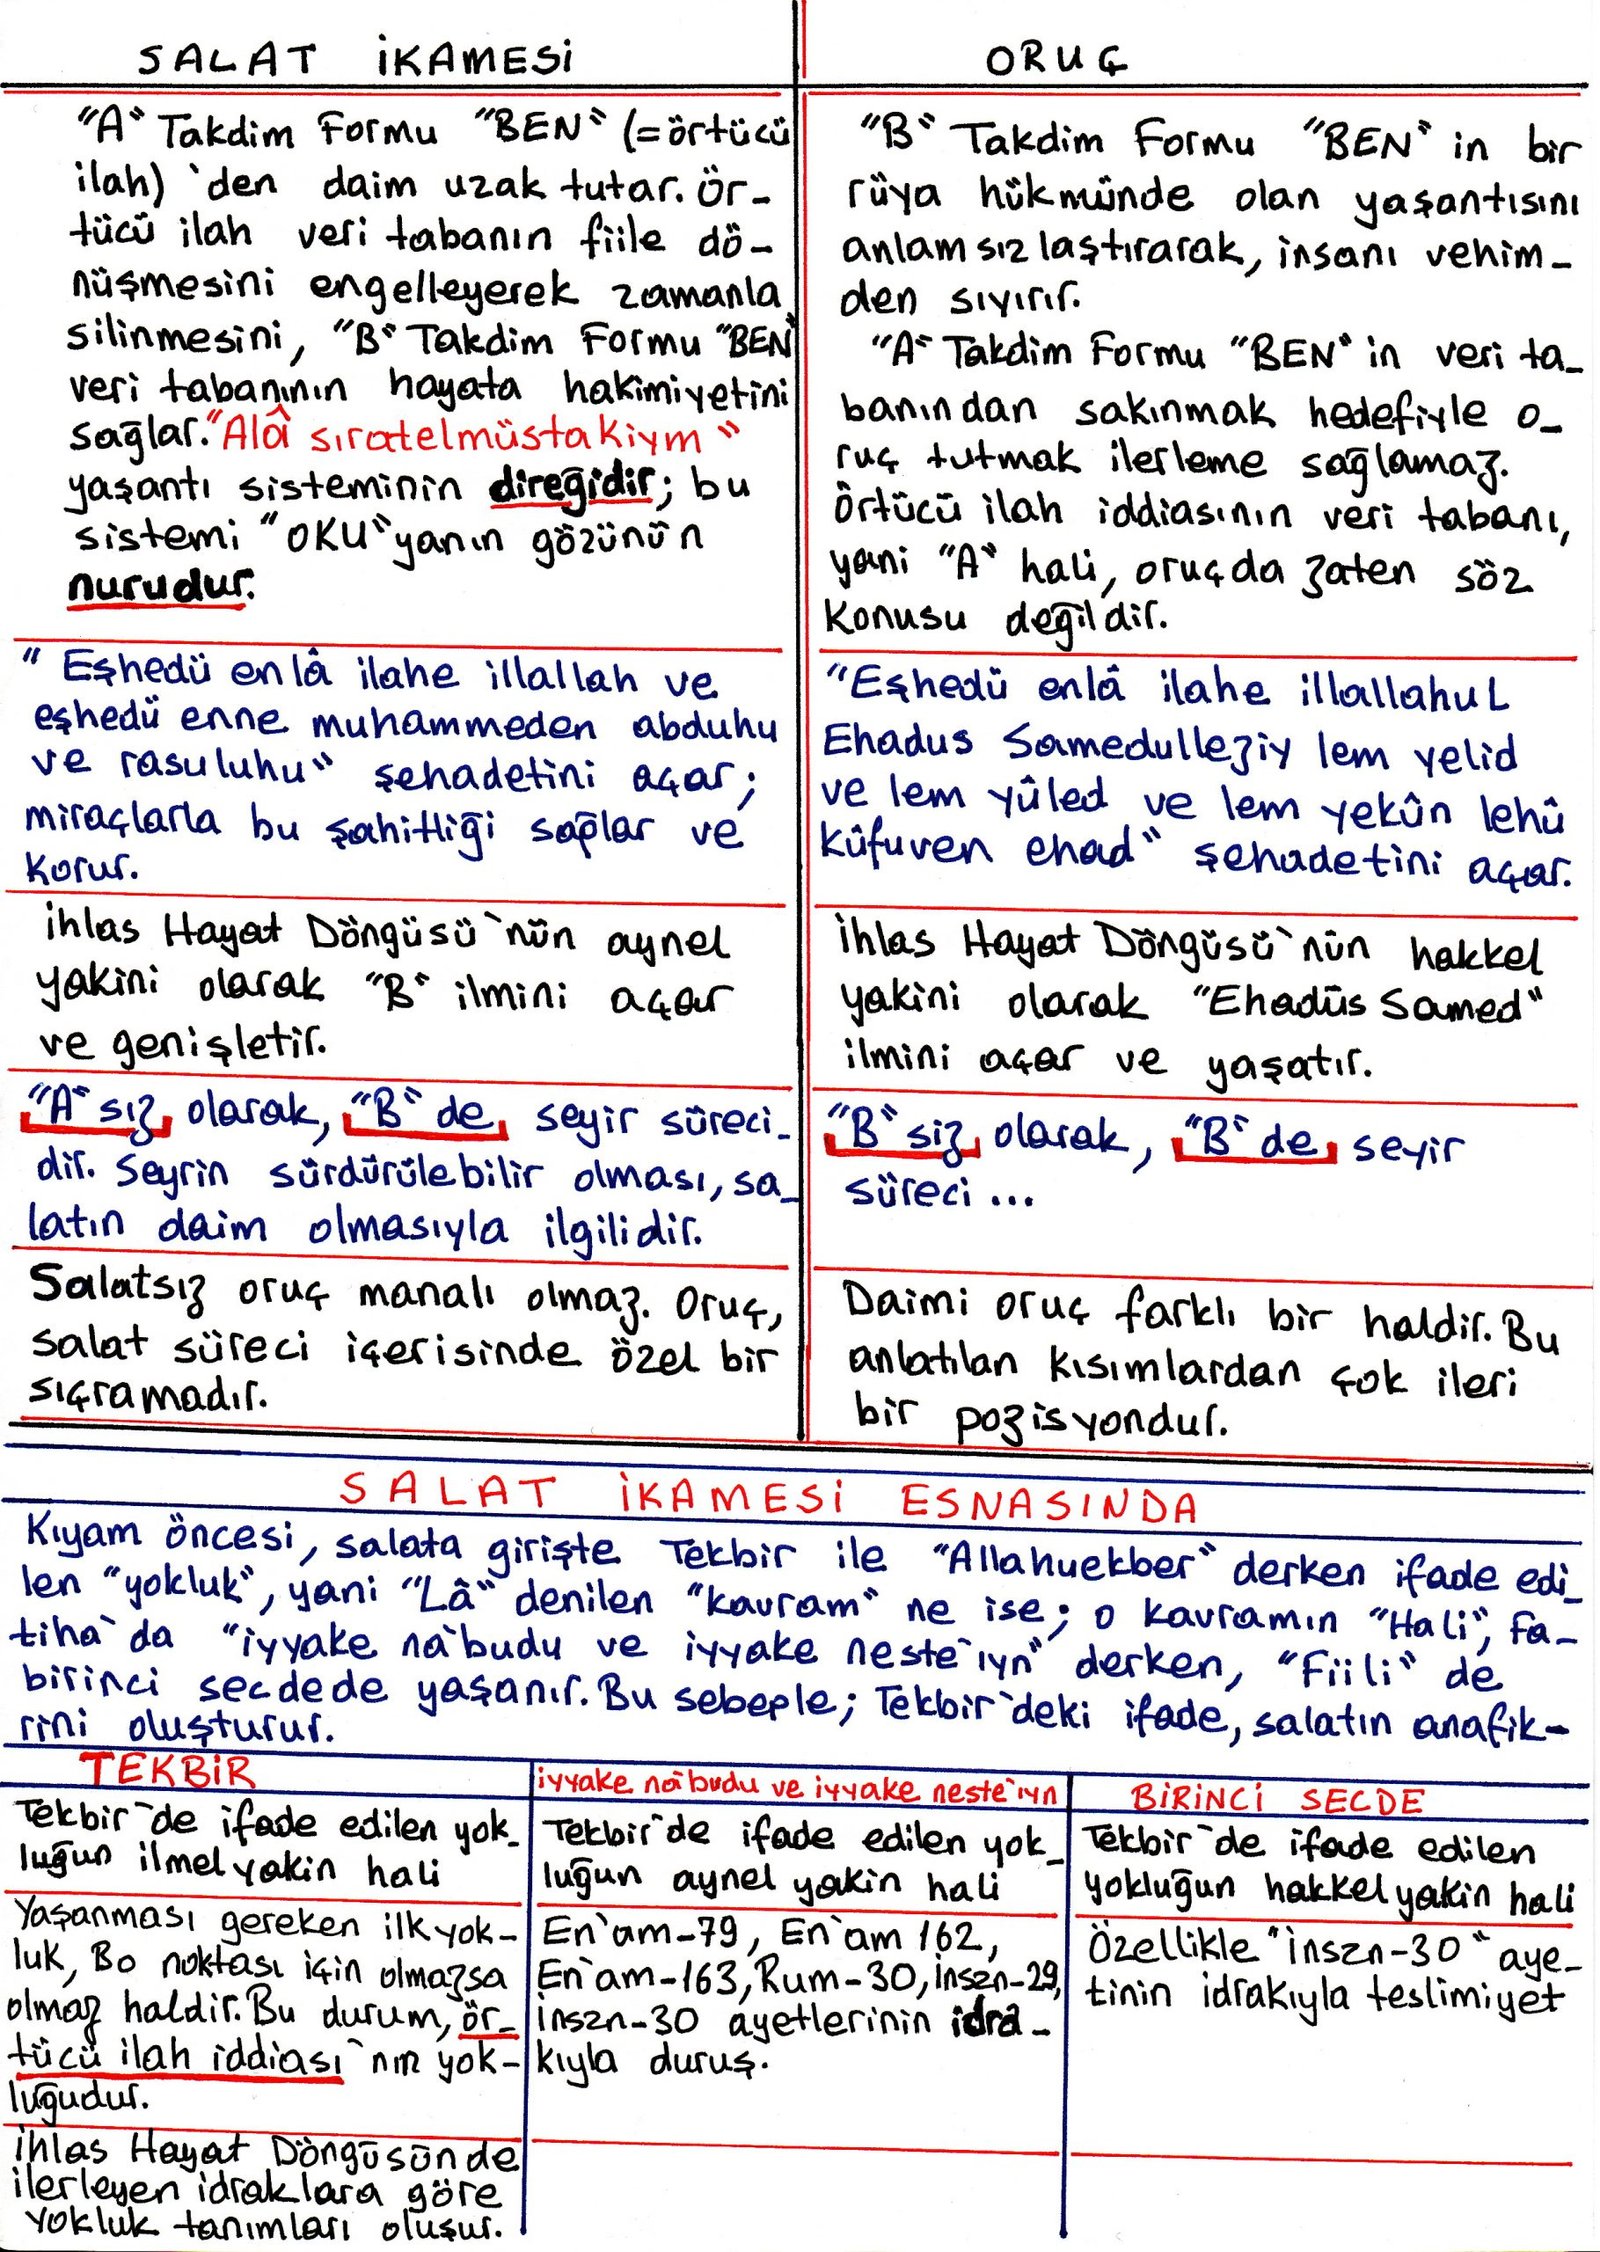 SALAT İKAMESİ
"A" Takdim Formu "BEN" (=örtücü
ilah) 'den daim uzak tutar. Ör-
tücü ilah veri tabanın fiile dö-
nüşmesini engelleyerek zamanla
silinmesini, "B" Takdim Formu "BEN"
veri tabanının hayata hakimiyetini
sağlar. "Alâ sıratelmüstakiym"
yaşantı sisteminin direğidir; bu
sistemi "OKU"yanın gözünün
nurudur.
"Eşhedü enlâ ilahe illallah ve
eşhedü enne muhammeden abduhu
ve rasuluhu" şehadetini açar;
miraçlarla bu şahitliği sağlar ve
korur.
İhlas Hayat Döngüsü'nün aynel
yakini olarak "B" ilmini açar
ve genişletir.
"A" sız olarak, "B" de seyir süreci-
dir. Seyrin sürdürülebilir olması, sa-
latın daim olmasıyla ilgilidir.
Salatsız oruç manalı olmaz. Oruç,
salat süreci içerisinde özel bir
sıçramadır.
ORUÇ
"B" Takdim Formu "BEN" in bir
rüya hükmünde olan yaşantısını
anlamsızlaştırarak, insanı vehim-
den sıyırır.
"A" Takdim Formu "BEN" in veri ta-
banından sakınmak hedefiyle o-
ruç tutmak ilerleme sağlamaz.
Örtücü ilah iddiasının veri tabanı,
yani "A" hali, oruçda zaten söz
konusu değildir.
"Eşhedü enlâ ilahe illallahul
Ehadus Samedulleziy lem yelid
ve lem yûled ve lem yekûn lehû
kûfuven ehad" şehadetini açar.
İhlas Hayat Döngüsü'nün hakkel
yakini olarak "Ehadüs Samed"
ilmini açar ve yaşatır.
"B" siz olarak, "B" de seyir
süreci ...
Daimi oruç farklı bir haldir. Bu
anlatılan kısımlardan çok ileri
bir pozisyondur.
SALAT İKAMESİ ESNASINDA
Kıyam öncesi, salata girişte Tekbir ile "Allahuekber" derken ifade edi-
len "yokluk", yani "Lâ" denilen "kavram" ne ise; o kavramın "Hali", Fa-
tiha'da "iyyake na'budu ve iyyake neste'ıyn" derken, "Fiili" de
birinci secdede yaşanır. Bu sebeple; Tekbir'deki ifade, salatın anafik-
rini oluşturur.
TEKBİR
Tekbir'de ifade edilen yok-
luğun ilmel yakin hali
Yaşanması gereken ilk yok-
luk, Bo noktası için olmazsa
olmaz haldir. Bu durum, ör-
tücü ilah iddiası'nın yok-
luğudur.
İhlas Hayat Döngüsünde
ilerleyen idraklara göre
yokluk tanımları oluşur.
iyyake na'budu ve iyyake neste'ıyn
Tekbir'de ifade edilen yok-
luğun aynel yakin hali
En'am-79, En'am 162,
En'am-163, Rum-30, İnszn-29,
İnszn-30 ayetlerinin idra-
kıyla duruş.
BİRİNCİ SECDE
Tekbir'de ifade edilen
yokluğun hakkel yakin hali
Özellikle "İnszn-30" aye-
tinin idrakıyla teslimiyet